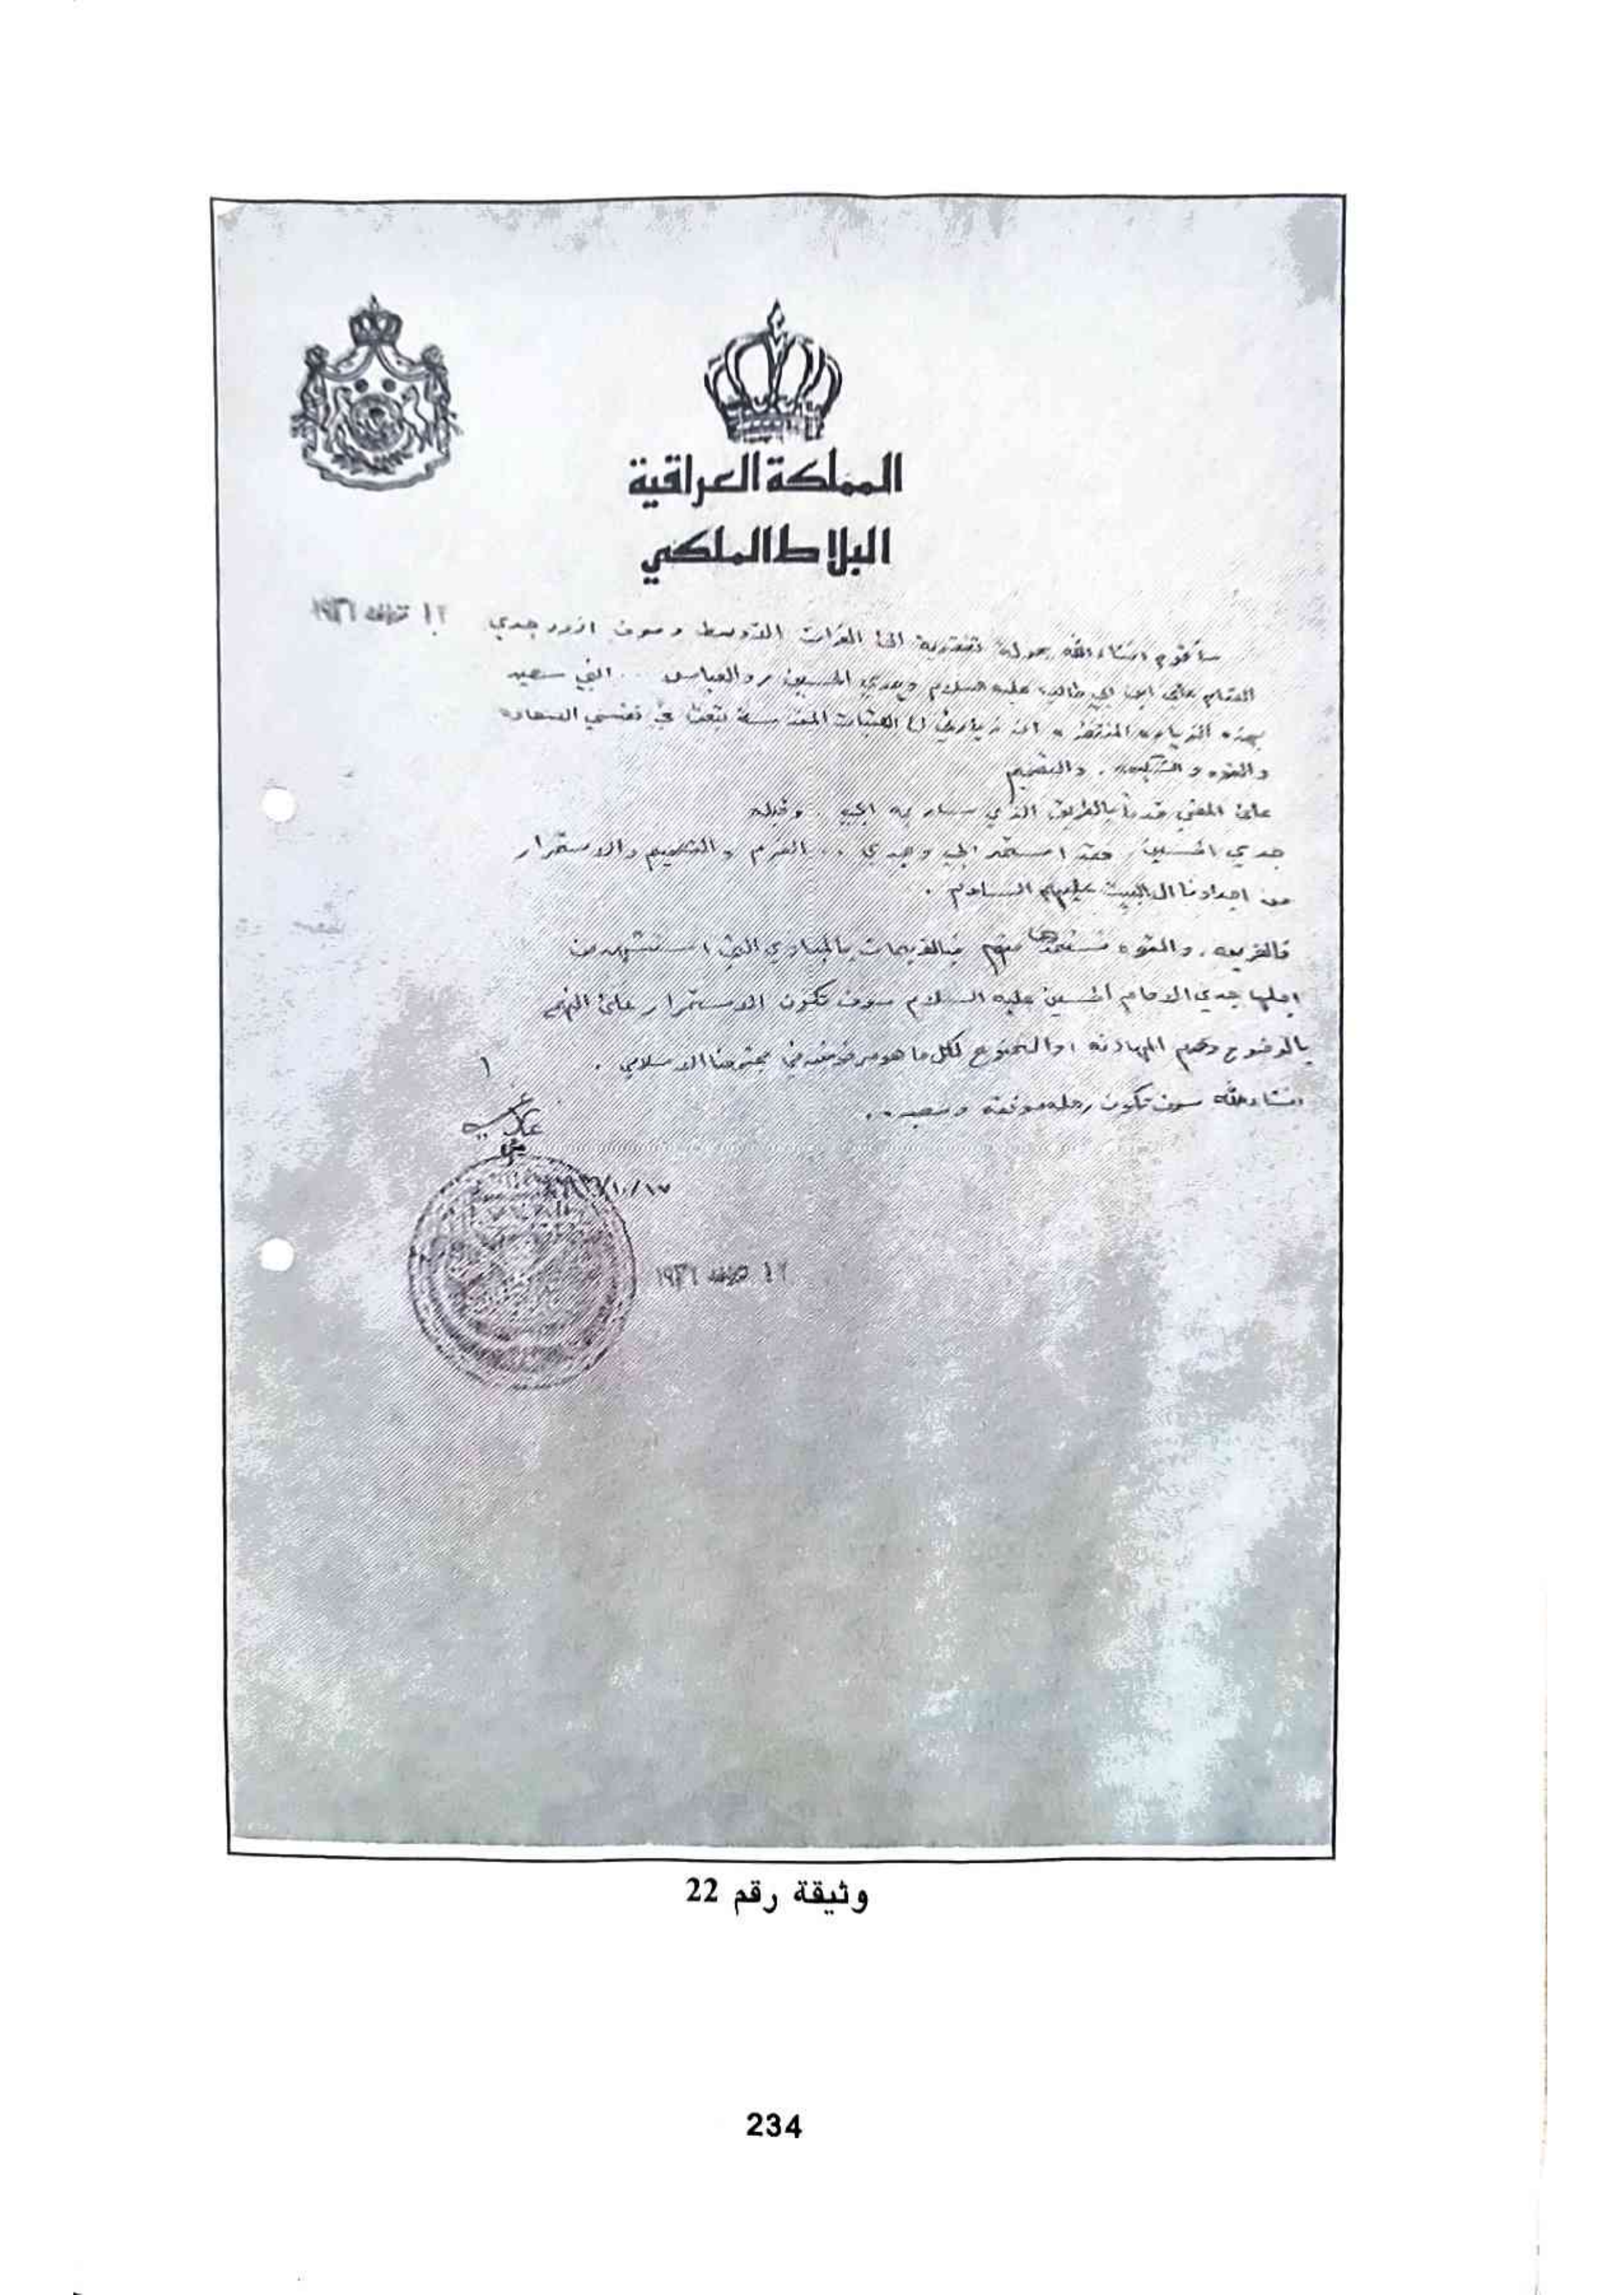 المملكة العراقية
البلاط الملكي
١٩٣٦
سأقوم انشاء الله بجولة تفقدية الى الفرات الاوسط وسوف ازور جدي
الامام علي ابن ابي طالب عليه السلام وجدي الحسين والعباس .. انني سعيد
بهذه الزياره المنتظره ان زيارتي الى العتبات المقدسة تبعث في نفسي السعاده
والقوه و السكينه . والتصميم
على المضي قدماً بالطريق الذي سار به ابي . وقبله
جدي الحسين , فقد استمد ابي وجدي .. العزم والتصميم والاستمرار
من اجدادنا ال البيت عليهم السلام .
فالعزيمه . والقوه نستمدها منهم فبالقيمات بالمبادي التي استشهد من
اجلها جدي الامام الحسين عليه السلام سوف تكون الاستمرار على النهج
بالوضوح وعدم المهادنه او الخنوع لكل ما هو مرفوض في مجتمعنا الاسلامي .
انشاء الله سوف تكون رحله موفقه وسعيده ..
غازي
١٠/١٧
١٩٣٦
وثيقة رقم 22
234